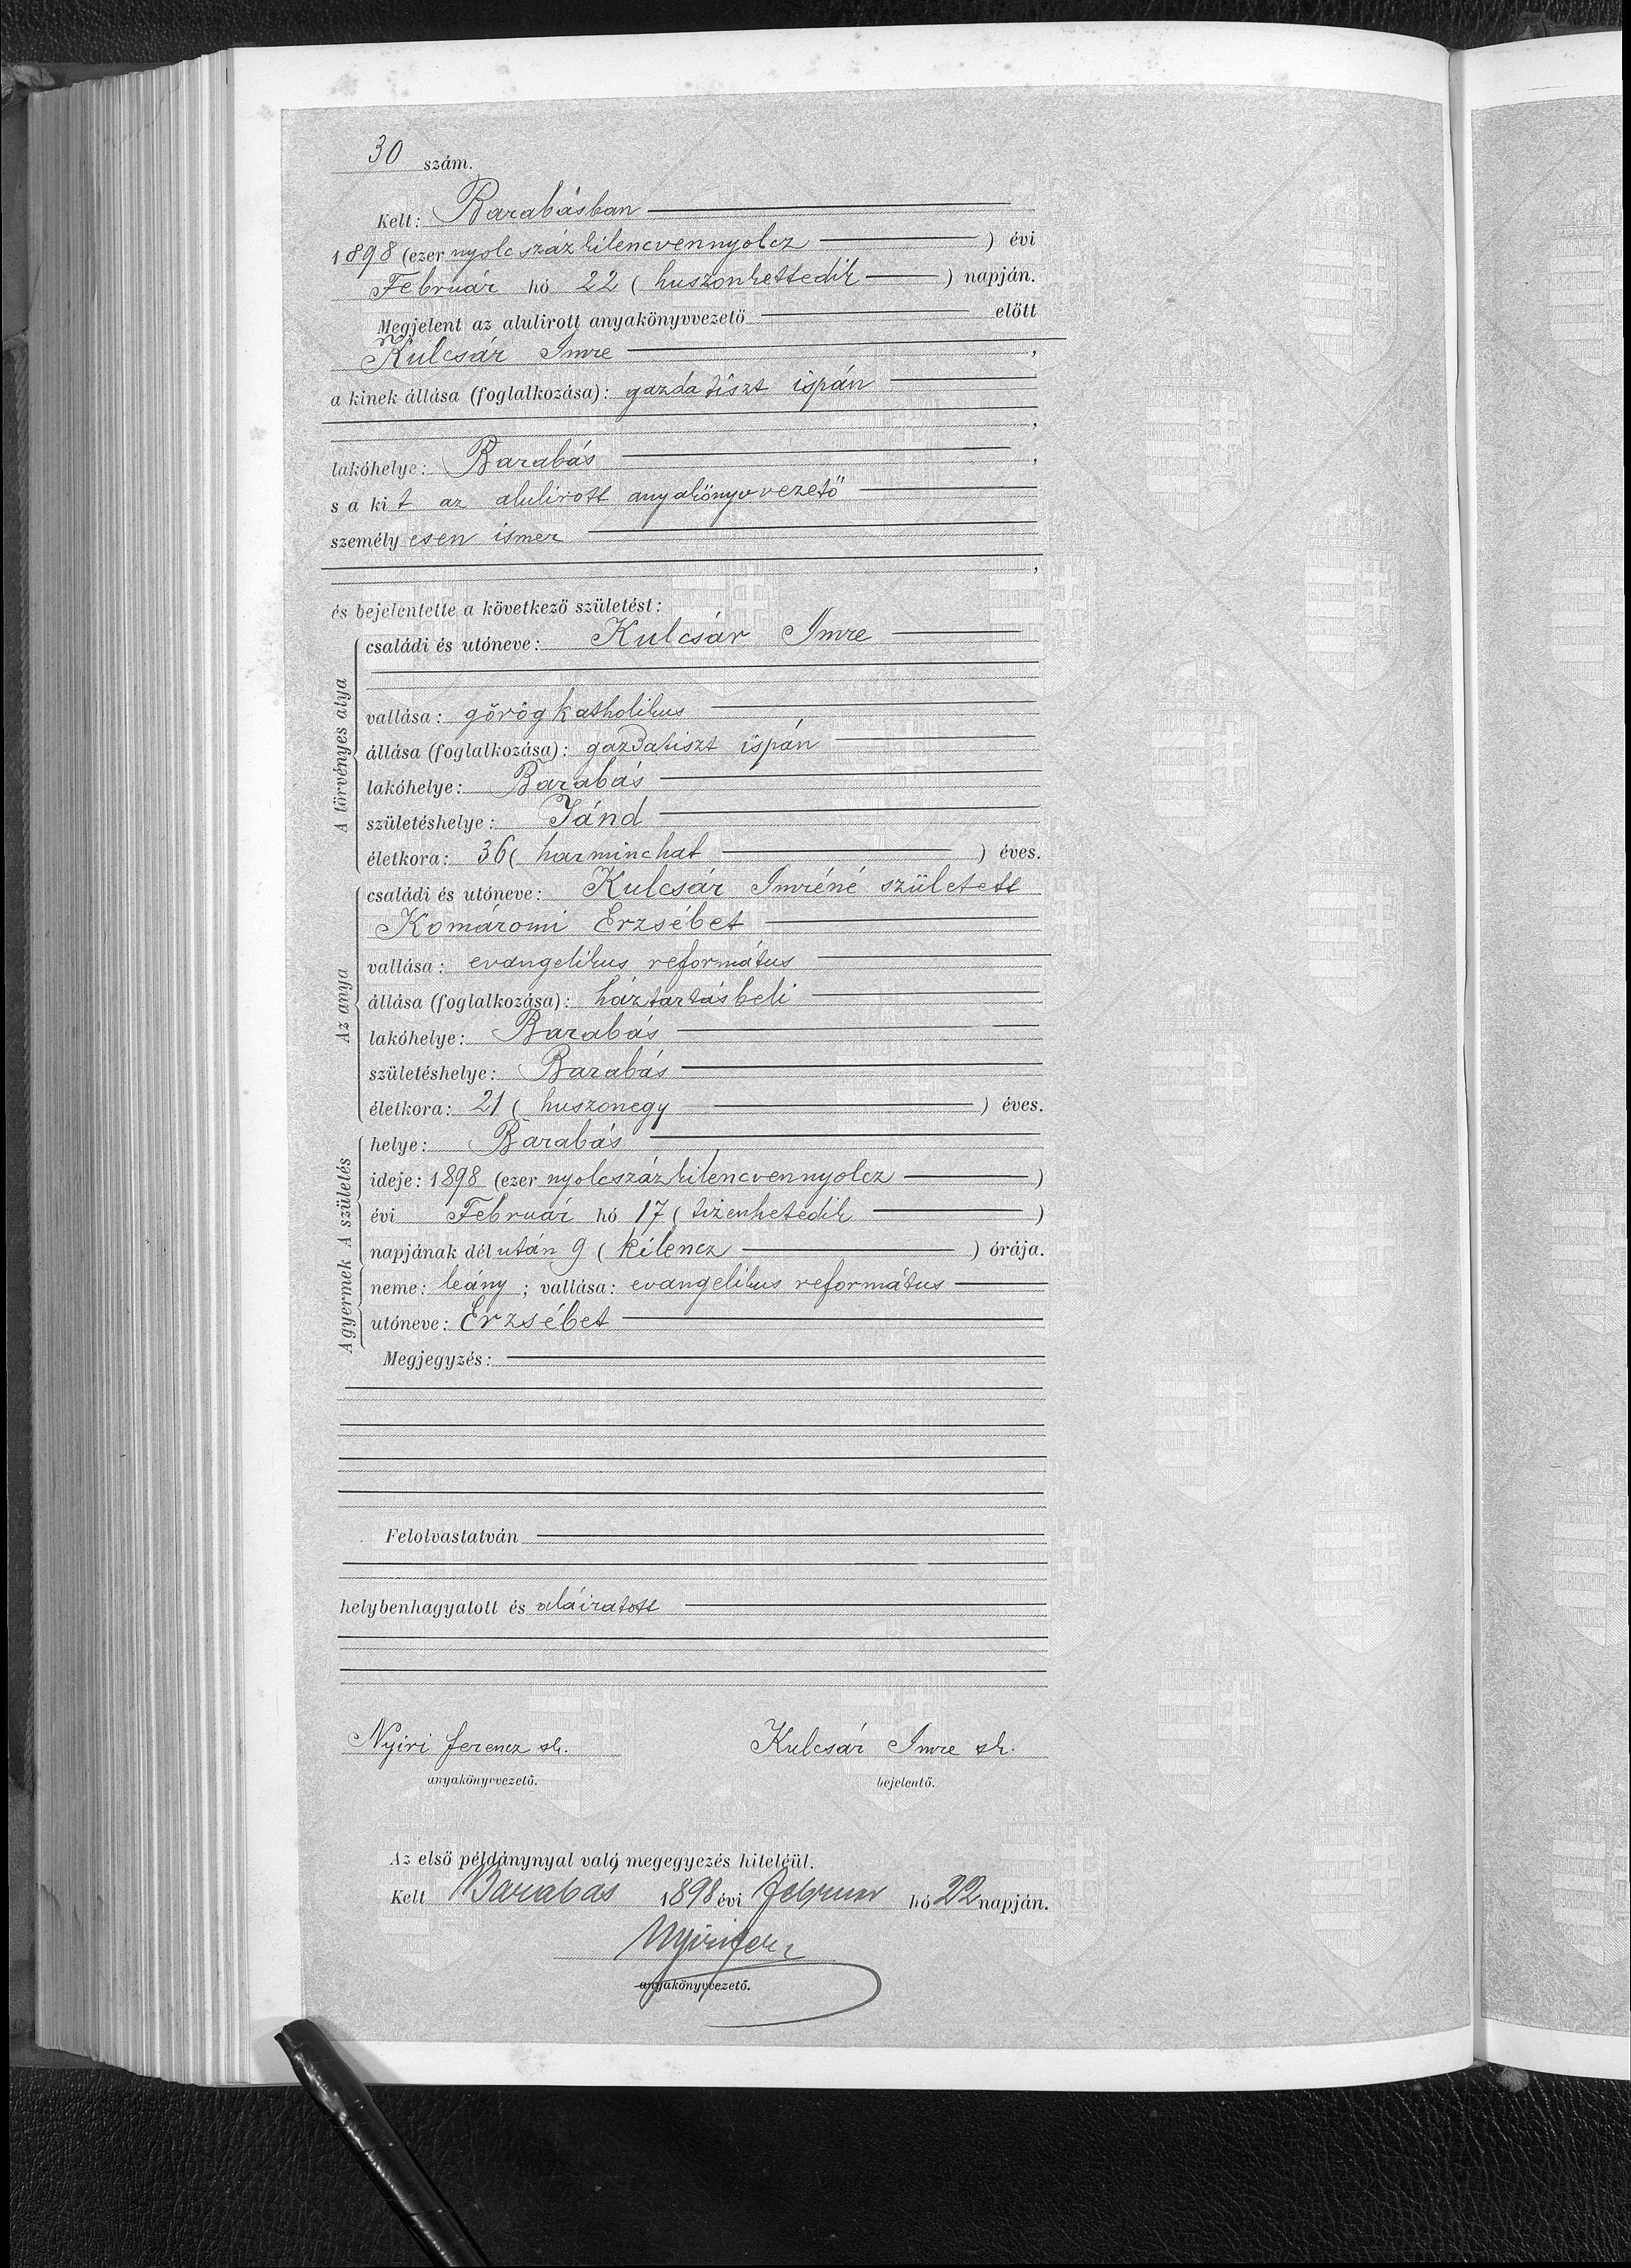 30 szám.
Kelt: Barabásban
1898 (ezer nyolcszáz kilencvennyolcz) évi
Február hó 22 (huszonkettedik) napján.
Megjelent az alulirott anyakönyvvezető előtt
Kulcsár Imre,
a kinek állása (foglalkozása): gazdatiszt ispán
,
lakóhelye: Barabás,
s a kit az alulirott anyakönyvvezető
személyesen ismer
,
és bejelentette a következő születést:
A törvényes atya
családi és utóneve: Kulcsár Imre
vallása: görög katholikus
állása (foglalkozása): gazdatiszt ispán
lakóhelye: Barabás
születéshelye: Jánd
életkora: 36 (harminchat) éves.
Az anya
családi és utóneve: Kulcsár Imréné született
Komáromi Erzsébet
vallása: evangelikus református
állása (foglalkozása): háztartásbeli
lakóhelye: Barabás
születéshelye: Barabás
életkora: 21 (huszonegy) éves.
A születés
helye: Barabás
ideje: 1898 (ezer nyolcszáz kilencvennyolcz)
évi Február hó 17 (tizenhetedik)
napjának délután 9 (kilencz) órája.
A gyermek
neme: leány; vallása: evangelikus református
utóneve: Erzsébet
Megjegyzés:
Felolvastatván
helybenhagyatott és aláiratott
Nyiri Ferencz sk. Kulcsár Imre sk.
anyakönyvvezető. bejelentő.
Az első példánynyal való megegyezés hiteléül.
Kelt Barabás 1898 évi Február hó 22 napján.
Nyiri Fer
anyakönyvvezető.